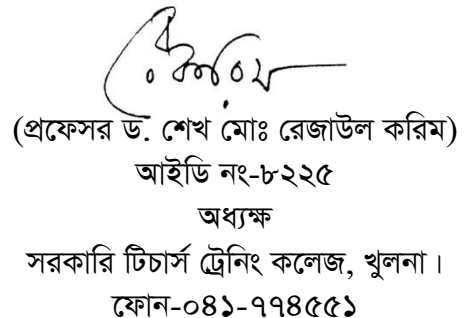 (প্রফেসর ড. শেখ মোঃ রেজাউল করিম)
আইডি নং-৮২২৫
অধ্যক্ষ
সরকারি টিচার্স ট্রেনিং কলেজ, খুলনা।
ফোন-০৪১-৭৭৪৫৫১